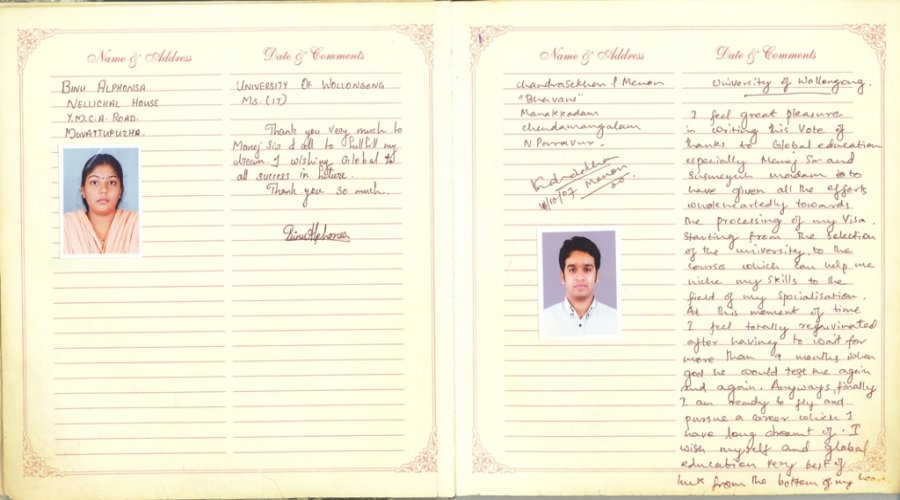 Name & Address
Date & Comments
BINU ALPHONSA
NELLICKAL HOUSE
Y.M.C.A. ROAD.
MUVATTUPUZHA.
UNIVERSITY OF WOLLONGONG
MS. (IT)
Thank you very much to
Manoj Sir & all to fullfill my
dream. I wishing Global to
all success in future.
Thank you so much.
BinuAlphonsa
Name & Address
Date & Comments
Chandrasekhan P. Menon
"Bhavani"
Manakkodam
Chendamangalam
N. Parravur.
Menon
University of Wollongong.
I feel great pleasure
in writing this Vote of
thanks to Global education
especially Manoj Sir and
madam to
have given all the efforts
wholeheartedly towards
the processing of my Visa.
Starting from the selection
of the university, to the
course which can help me
niche my skills to the
field of my specialisation.
At this moment of time
I feel totally rejuvinated
after having to wait for
more than 9 months when
god he would test me again
and again. Anyways, finally
I am ready to fly and
pursue a career which I
have long dreamt of. I
wish myself and global
education very best of
luck from the bottom of my heart